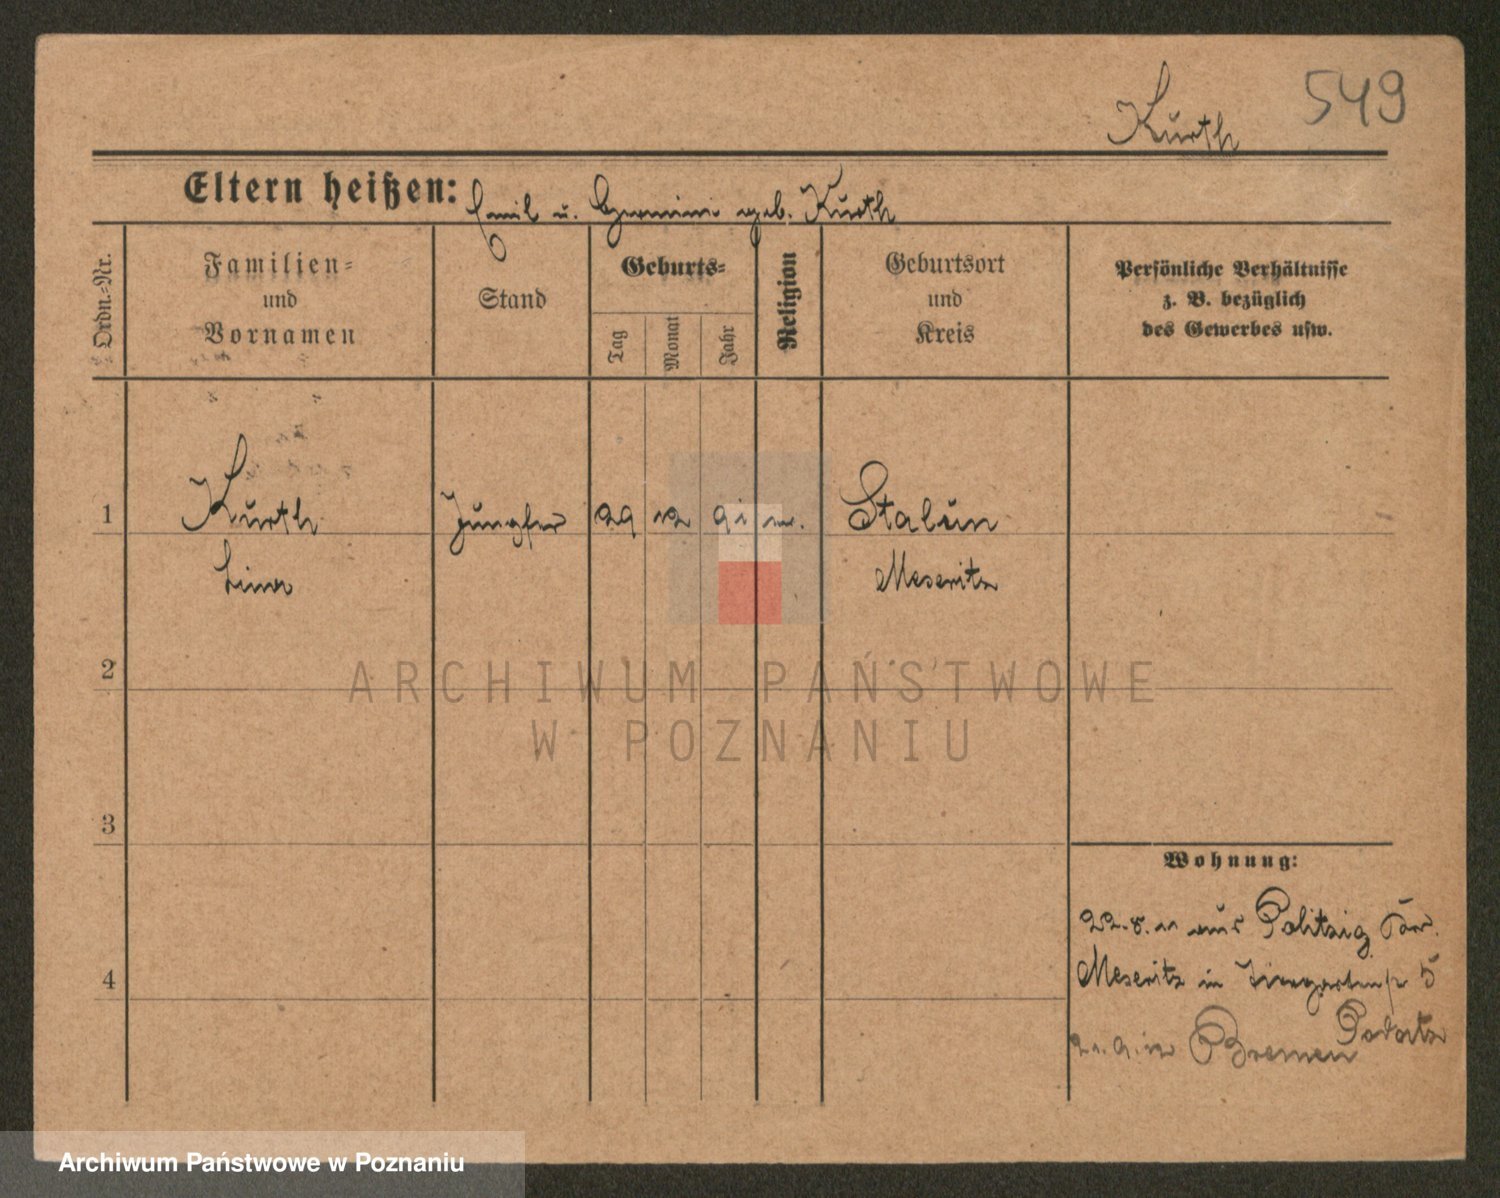 549
Kurth
Eltern heißen: Emil u. geb. Kurth
Ordn.-Nr.
Familien-
und
Vornamen
Stand
Geburts-
Tag
Monat
Jahr
Religion
Geburtsort
und
Kreis
Persönliche Verhältnisse
z. B. bezüglich
des Gewerbes usw.
1
Kurth
Jungfer
29
12
91
Stalun
Meseritz
2
3
4
Wohnung:
22.8.11 aus Politzig
Meseritz in Tiergartenstr 5
Bremen
ARCHIWUM PAŃSTWOWE
W POZNANIU
Archiwum Państwowe w Poznaniu